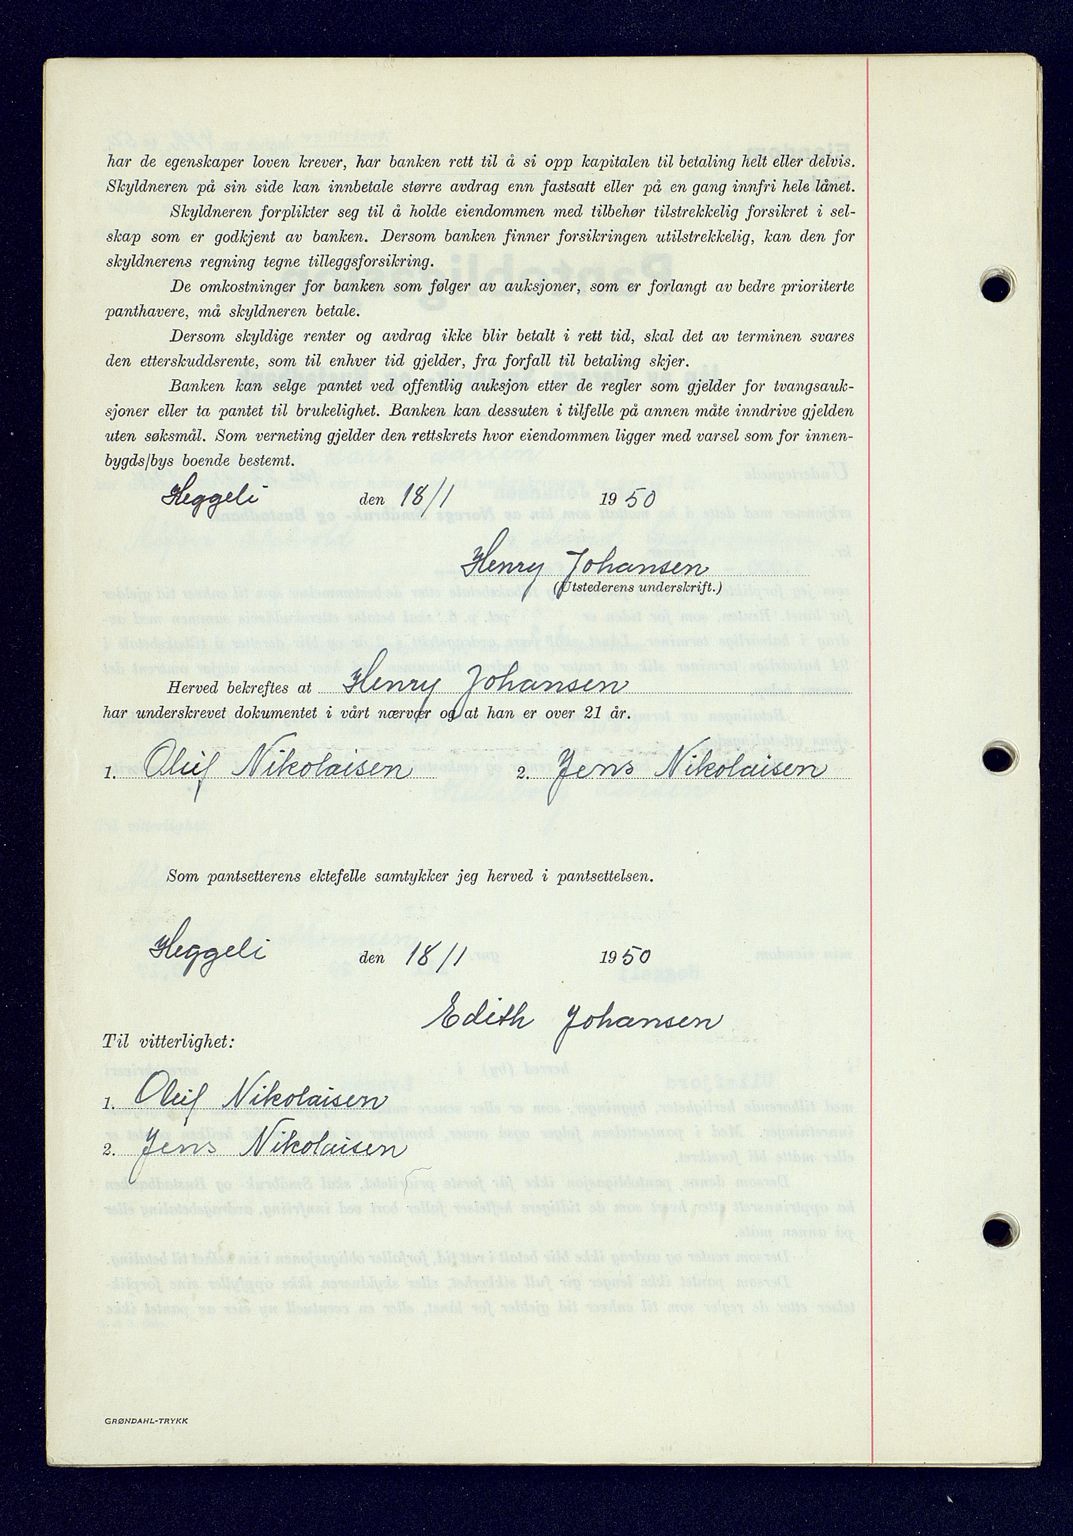 har de egenskaper loven krever, har banken rett til å si opp kapitalen til betaling helt eller delvis.
Skyldneren på sin side kan innbetale større avdrag enn fastsatt eller på en gang innfri hele lånet.
Skyldneren forplikter seg til å holde eiendommen med tilbehør tilstrekkelig forsikret i sel-
skap som er godkjent av banken. Dersom banken finner forsikringen utilstrekkelig, kan den for
skyldnerens regning tegne tilleggsforsikring.
De omkostninger for banken som følger av auksjoner, som er forlangt av bedre prioriterte
panthavere, må skyldneren betale.
Dersom skyldige renter og avdrag ikke blir betalt i rett tid, skal det av terminen svares
den etterskuddsrente, som til enhver tid gjelder, fra forfall til betaling skjer.
Banken kan selge pantet ved offentlig auksjon etter de regler som gjelder for tvangsauk-
sjoner eller ta pantet til brukelighet. Banken kan dessuten i tilfelle på annen måte inndrive gjelden
uten søksmål. Som verneting gjelder den rettskrets hvor eiendommen ligger med varsel som for innen-
bygds/bys boende bestemt.
Heggeli den 18/1 1950
Henry Johansen
(Utstederens underskrift.)
Herved bekreftes at Henry Johansen
har underskrevet dokumentet i vårt nærvær og at han er over 21 år.
1. Oluf Nikolaisen 2. Jens Nikolaisen
Som pantsetterens ektefelle samtykker jeg herved i pantsettelsen.
Heggeli den 18/1 1950
Edith Johansen
Til vitterlighet:
1. Oluf Nikolaisen
2. Jens Nikolaisen
GRØNDAHL-TRYKK